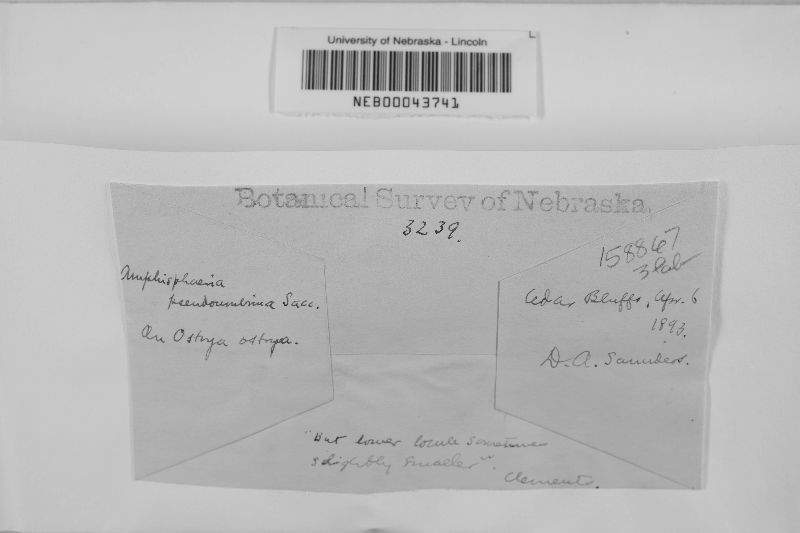 L
University of Nebraska - Lincoln
NEB00043741
Botanical Survey of Nebraska.
3239.
158867
Amphisphaeria
pseudoumbrina Sacc.
On Ostrya ostrya.
Cedar Bluffs, Apr. 6
1893.
D. A. Saunders.
"But lower locule sometimes
slightly smaller".
Clements.